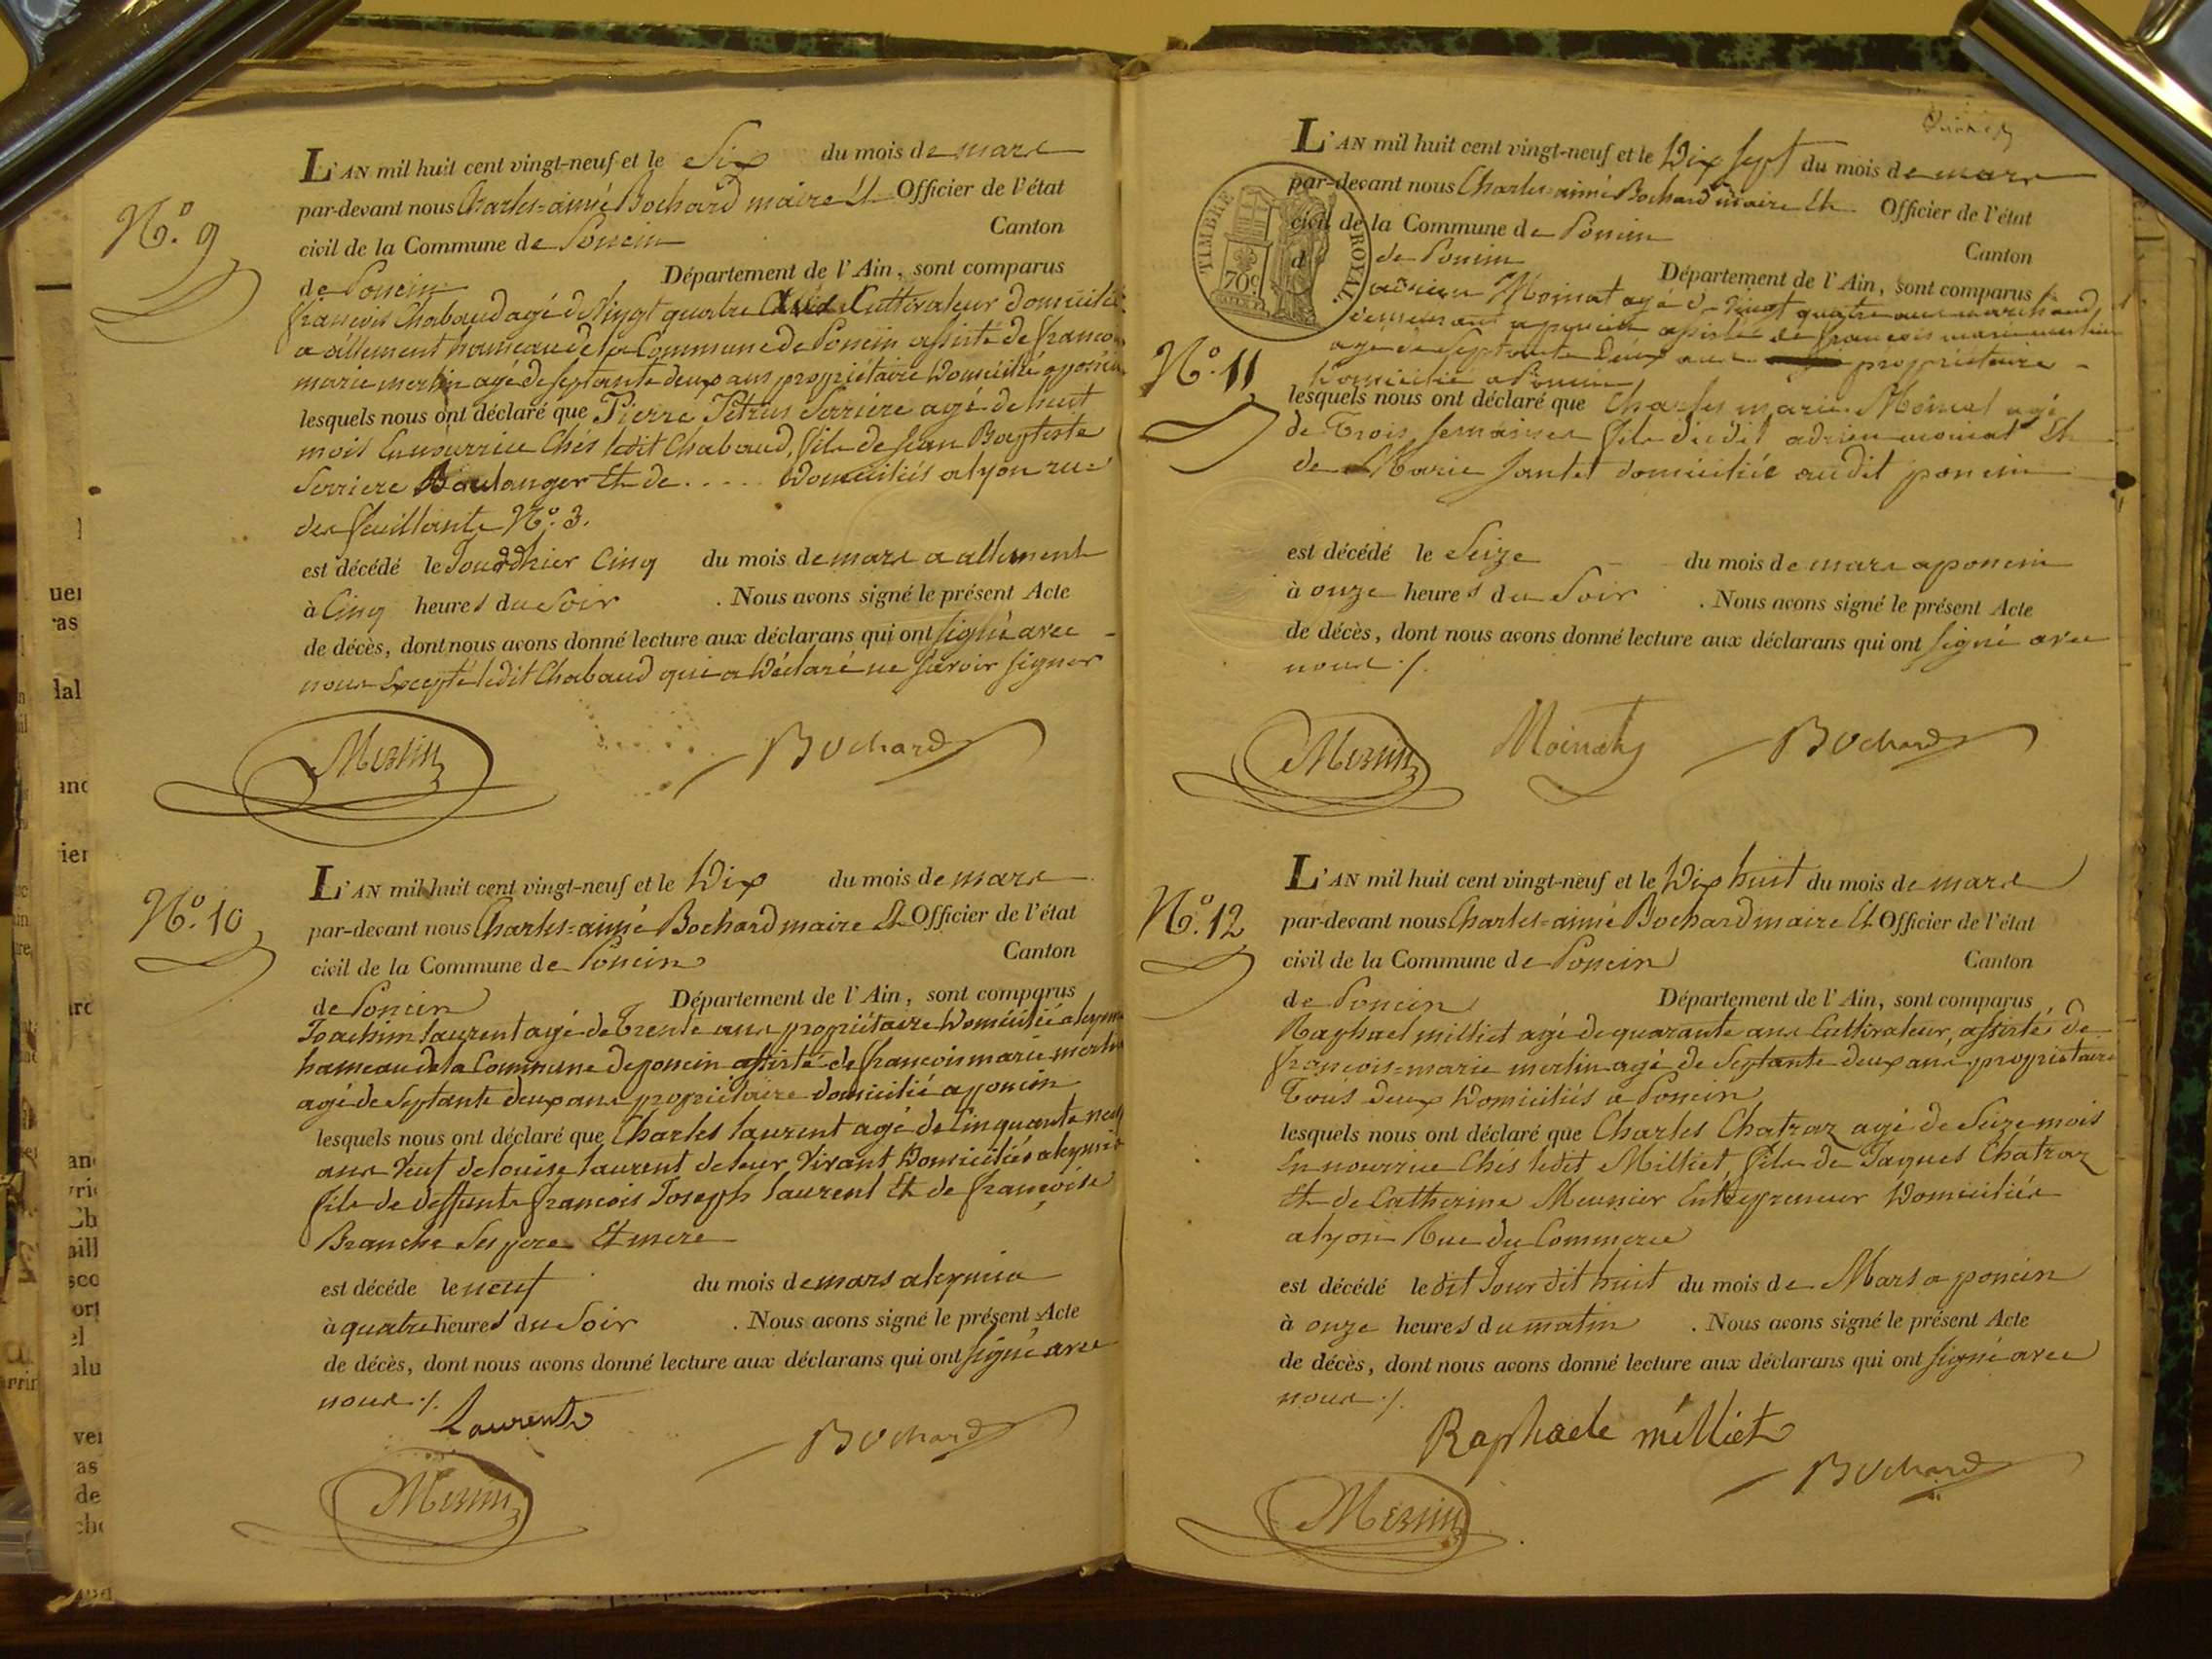 N.º 9
L'AN mil huit cent vingt-neuf et le Six du mois de mars
par-devant nous Charles=aimé Bochard maire Et Officier de l'état
civil de la Commune de Poncin Canton
de Poncin Département de l'Ain, sont comparus
françois Chabaud agé de Vingt quatre ans Cultivateur domicilié
a allement hameau de la Commune de Poncin assisté de françois
marie merlin agé de septante deux ans propriétaire Domicilié a poncin
lesquels nous ont déclaré que Pierre Pétrus Serriere agé de huit
mois En nourrice Chés ledit Chabaud, fils de Jean Baptiste
Serriere Boulanger Et de .... Domiciliés a lyon rue
des feuillants Nº. 3.
est décédé le Jourdhier Cinq du mois de mars a allement
à Cinq heures du Soir . Nous avons signé le présent Acte
de décès, dont nous avons donné lecture aux déclarans qui ont signé avec
nous Excepté ledit Chabaud qui a Déclaré ne savoir signer
Merlin Bochard
N.º 10
L'AN mil huit cent vingt-neuf et le Dix du mois de mars
par-devant nous Charles=aimé Bochard maire Et Officier de l'état
civil de la Commune de Poncin Canton
de Poncin Département de l'Ain, sont comparus
Joachim laurent agé de Trente ans propriétaire Domicilié a
hameau de la Commune de poncin assisté de françois marie merlin
agé de Septante deux ans propriétaire domicilié a poncin
lesquels nous ont déclaré que Charles laurent agé de Cinquante neuf
ans Veuf de louise laurent de leur Vivant Domiciliés
fils de deffunts françois Joseph laurent Et de françoise
Branche Ses pere Et mere
est décéde le neuf du mois de mars
à quatre heures du Soir . Nous avons signé le présent Acte
de décès, dont nous avons donné lecture aux déclarans qui ont signé avec
nous ./.
Laurent
Merlin Bochard
L'AN mil huit cent vingt-neuf et le Dix sept du mois de mars
par-devant nous Charles=aimé Bochard maire Et Officier de l'état
civil de la Commune de Poncin
Canton
de Poncin Département de l'Ain, sont comparus
TIMBRE ROYAL
70c
adrien Moinat agé de vingt quatre ans marchand
demeurant a poncin assisté de françois marie merlin
agé de Septante deux ans propriétaire
domicilié a Poncin
N.º 11
lesquels nous ont déclaré que Charles marie Moinat agé
de Trois semaines fils dudit adrien moinat Et
de Marie Jantet domiciliés audit poncin
est décédé le Seize du mois de mars a poncin
à onze heures du Soir . Nous avons signé le présent Acte
de décès, dont nous avons donné lecture aux déclarans qui ont signé avec
nous ./.
Merlin Moinat Bochard
N.º 12
L'AN mil huit cent vingt-neuf et le Dix huit du mois de mars
par-devant nous Charles=aimé Bochard maire Et Officier de l'état
civil de la Commune de Poncin Canton
de Poncin Département de l'Ain, sont comparus
Raphael milliet agé de quarante ans Cultivateur, assisté de
françois=marie merlin agé de Septante deux ans propriétaire
Tous deux Domiciliés a Poncin
lesquels nous ont déclaré que Charles Chatraz agé de Seize mois
En nourrice Chés ledit Milliet, fils de Jaques Chatraz
Et de Catherine Meunier Entrepreneur Domiciliés
a lyon Rue du Commerce
est décédé le dit Jour dit huit du mois de Mars a poncin
à onze heures du matin . Nous avons signé le présent Acte
de décès, dont nous avons donné lecture aux déclarans qui ont signé avec
nous ./.
Raphaele milliet
Merlin Bochard